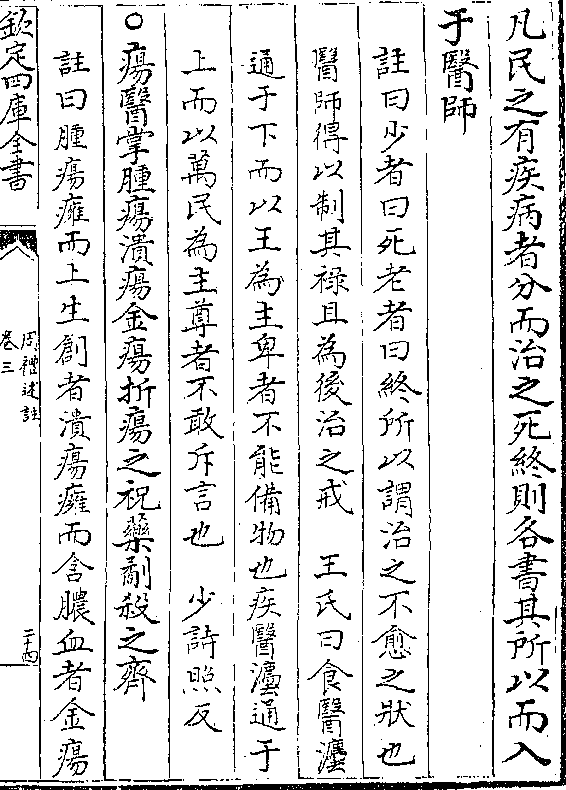 凡民之有疾病者分而治之死終則各書其所以而入
于醫師
註曰少者曰死老者曰終所以謂治之不愈之狀也
醫師得以制其祿且為後治之戒　王氏曰食醫灋
通于下而以王為主卑者不能備物也疾醫灋通于
上而以萬民為主尊者不敢斥言也　少詩照反
○瘍醫掌腫瘍潰瘍金瘍折瘍之祝藥劀殺之齊
註曰腫瘍癰而上生創者潰瘍癰而含膿血者金瘍
欽定四庫全書
周禮述註
卷三
二十四